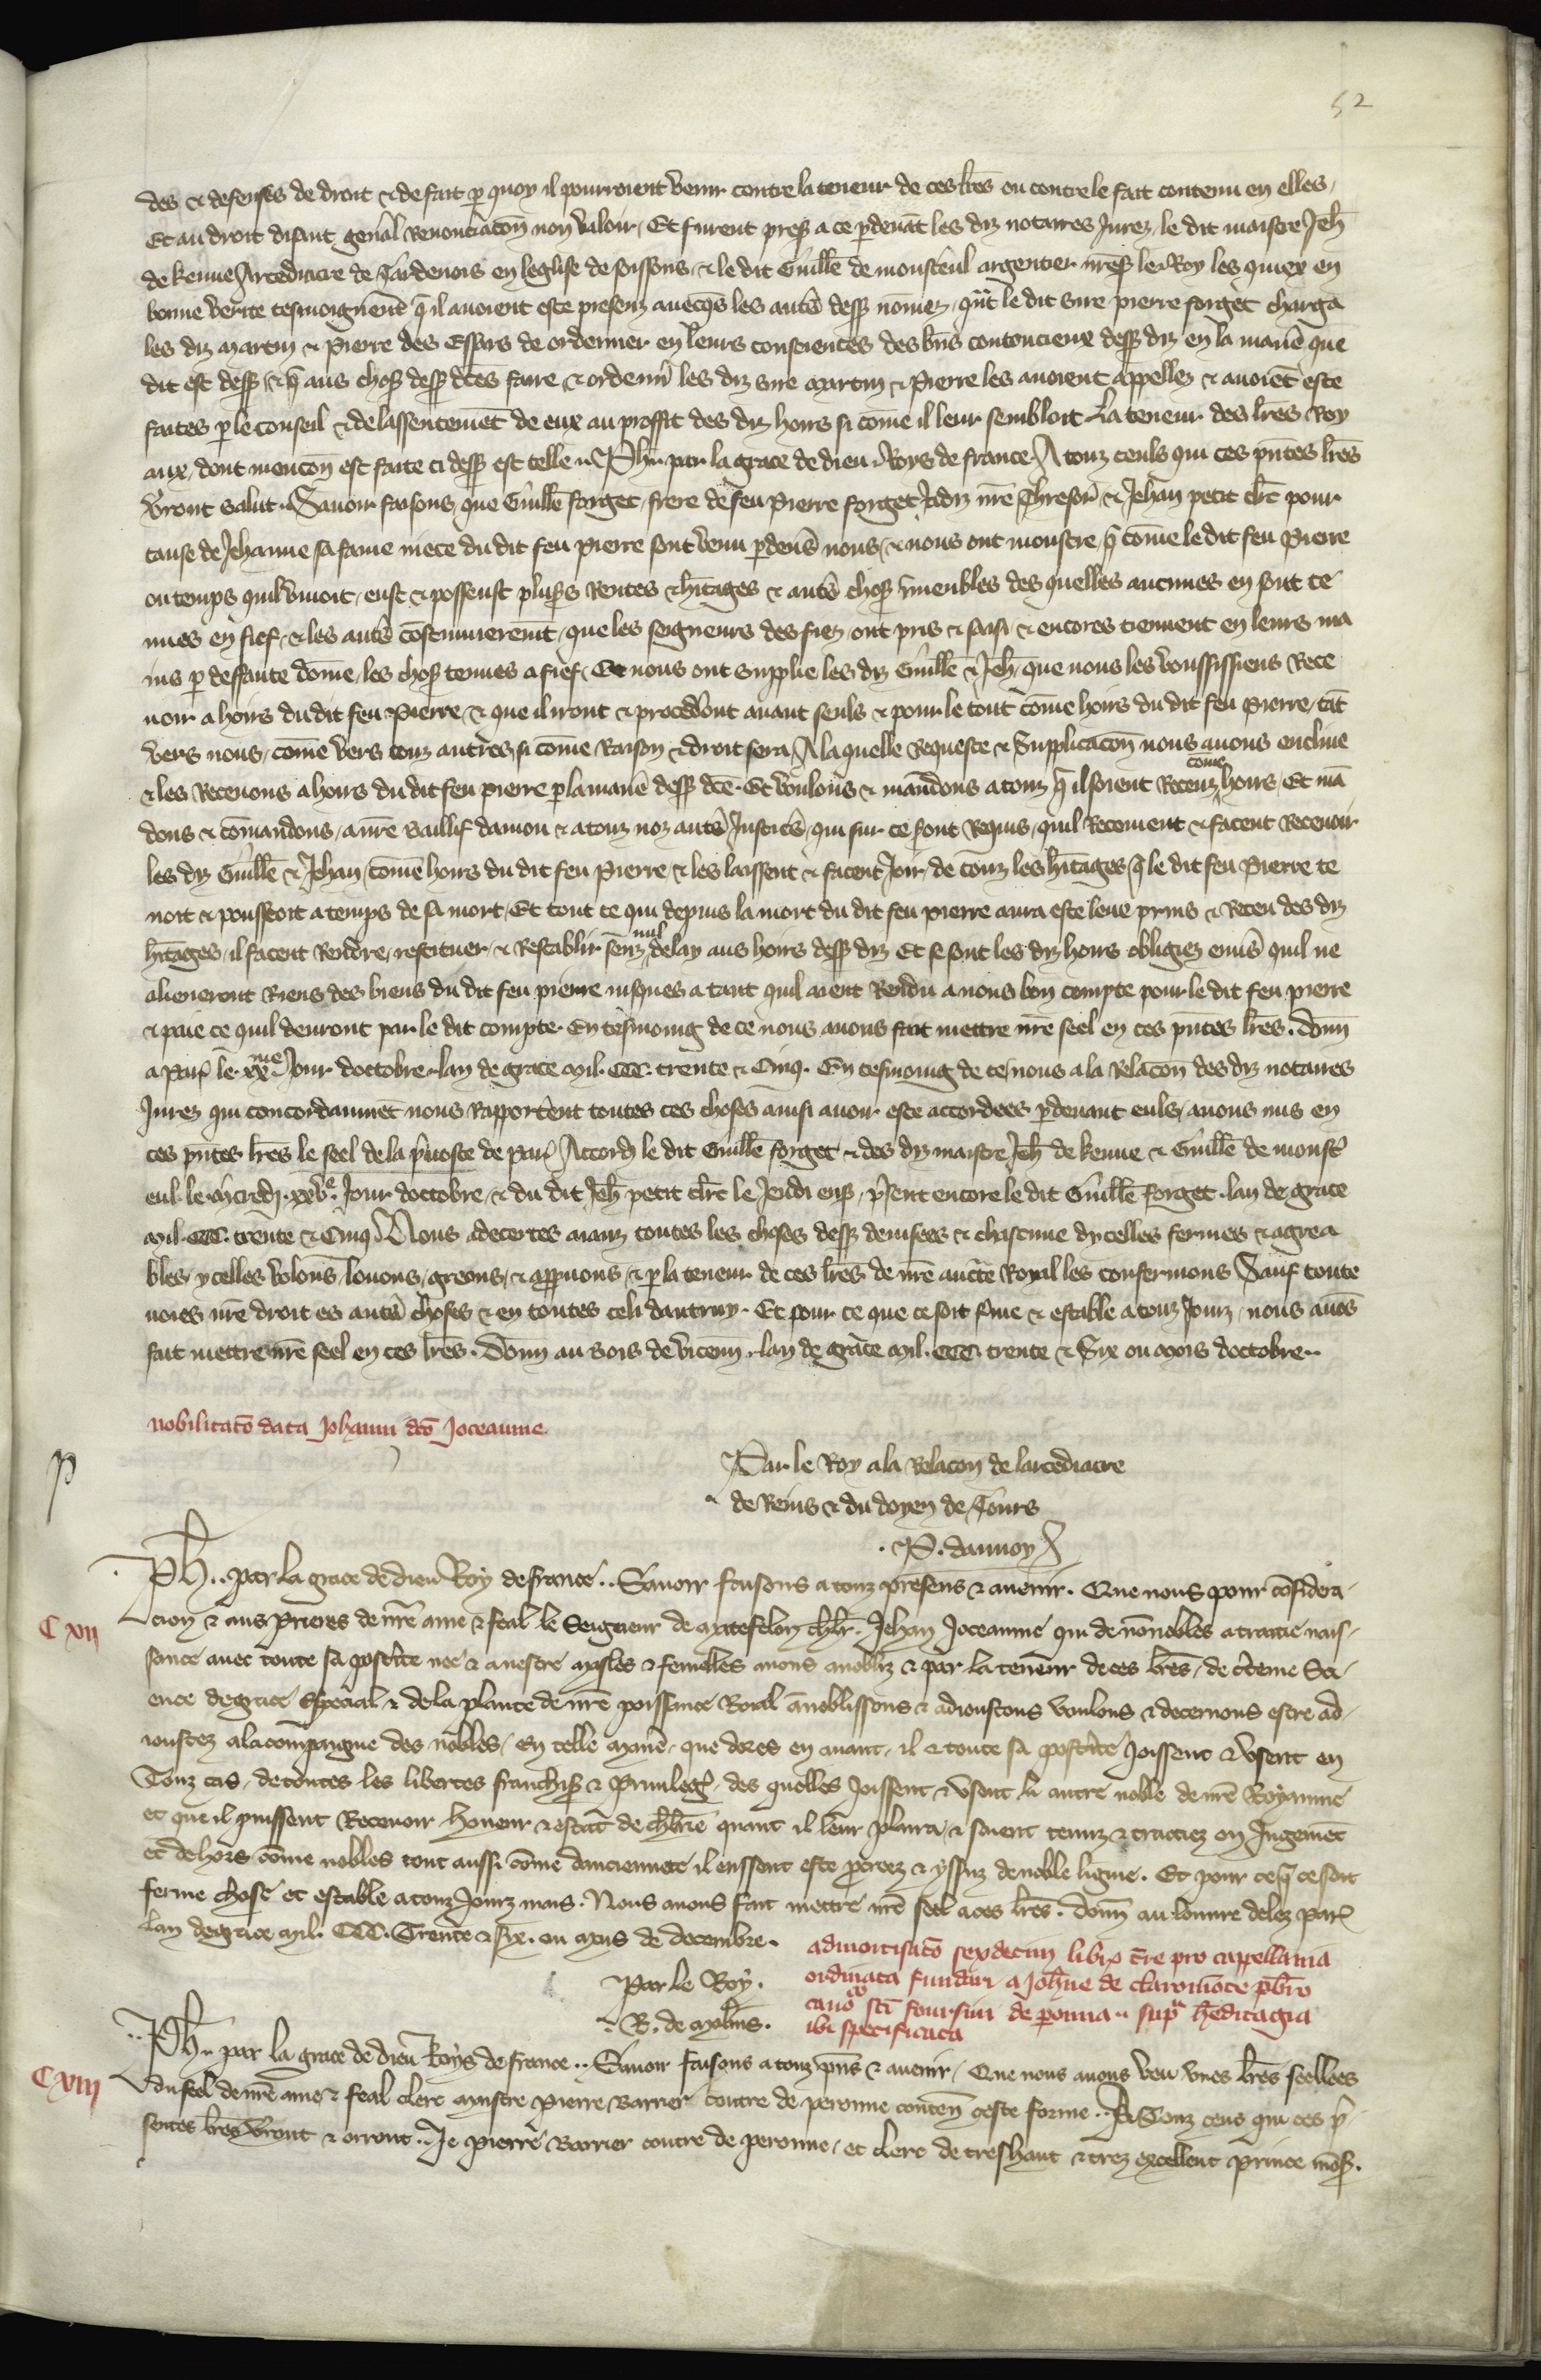 52
des & defenses de droit & de fait p quoy il pourroient venir contre la teneur de ces lr̄es ou contre le fait contenu en elles,
Et au droit disant genal Renonciacōn non valoir, Et furent pres a ce pdeuāt les diz notaires Jurez, le dit maistre Jeh̄
de kenue Arcediacre de Tardenois en leglise de soissons, & le dit Guillē de monsteul argentier nr̄es le Roy les quiex en
bonne verite tesmoignerēt q̄ il auoient este presenz auecqs les autˢ dess nōmez, qāt le dit sire pierre forget charga
les diz Martin & Pierre des Essars de ordenner en leurs consciences des bn̄s contencieux dess diz en la manē que
dit est dess, & q̄ aus choses dess dc̄es faire & ordenn̄ les diz sire Martin & Pierre les auoient appellez & auoiēt este
faites p le conseil & de lassentemēt de eux au proffit des diz hoirs si cōme il leur sembloit La teneur des lr̄es Roy
aux, dont mencōn est faite ci dess est telle .. Ph̄. par la grace de dieu Roys de france A touz ceuls qui ces pn̄tes lr̄es
vront salut. Sauoir faisons, que Guillē forget, frere de feu Pierre forget Jadiz nr̄e Thresor̄, & Jehan petit clr̄c pour
cause de Jehanne sa fame niece du dit feu Pierre sont venu pdeuˢ nous, & nous ont monstre, q̄ cōme le dit feu Pierre
ou temps quil viuoit, eust & possenst plusˢ Rentes & hitages & autˢ choses īmeubles des quelles aucunes en sont te
nues en fief, & les autˢ cōstumierem̄t, que les seigneurs des fiez, ont pris & saisi, & encores tiennent en leurs ma
ins p deffaute dōme, les choses tenues a fief, Et nous ont supplie les diz Guillē & Jeh̄, que nous les voussissiens Rece
uoir a hoirs du dit feu Pierre, & que il iront & procedˢont auant seuls & pour le tout cōme hoirs du dit feu Pierre, tāt
vers nous, cōme vers touz autres, si cōme Raison & droit sera, A la quelle Requeste & Supplicacōn nous auons encline
& les Receuons a hoirs du dit feu pierre p la manē dess dc̄e. Et voulons & mandons a touz q̄ il soient Receuz cōme hoirs, Et mā
dons & cōmandons, a nr̄e Baillif damou & a touz noz autˢ Justicˢ, qui sur ce sont Requis, quil Recoiuent & facent Receuoir
les diz Guillē & Jehan, cōme hoirs du dit feu Pierre & les laissent & facent Joir, de touz les hitages, q̄ le dit feu Pierre te
noit & pousseoit a temps de sa mort, Et tout ce qui depuis la mort du dit feu pierre aura este leue prins & Receu des diz
hitages, il facent Rendre, restituer & Restablir senz nul delay aus hoirs dess diz Et se sont les diz hoirs obligiez enuˢ quil ne
alieneront Riens des biens du dit feu pierre iusques a tant quil aient Rendu a nous bon compte pour le dit feu pierre
& paie ce quil deuront par le dit compte. En tesmoing de ce nous auons fait mettre nr̄e seel en ces pn̄tes lr̄es. Donn̄
a Par le xxme Jour doctobre lan de grace Mil. CCC. trente & Cinq. En tesmoing de ce nous a la Relacōn des diz notaires
Jurez qui concordanmēt nous Rapporterent toutes ces choses ainsi auoir este accordees pdeuant euls, auons mis en
ces pn̄tes lr̄es le seel de la puoste de Par Accord le dit Guillē forget & des diz maistre Jeh̄ de kenue & Guillē de monst
eul. le Mcredj .xxve. Jour doctobre, & du dit Jeh̄ petit clr̄c le Jeudi ens, pˢent encore le dit Guillē forget. lan de grace
Mil. CCC. trente & Cinq Nous adecertes aianz toutes les choses dess deuisees & chascune dycelles fermes & agrea
bles, ycelles volons, louons, greons, & appuons, & p la teneur de ces lr̄es de nr̄e aucte Royal les confermons Sauf toute
uoies nr̄e droit es autˢ choses & en toutes celi dautruy. Et pour ce que ce soit fme & estable a touz Jourz, nous auōs
fait mettre nr̄e seel en ces lr̄es. Donn̄ au Bois de vicenn̄. lan de grace Mil. CCC. trente & Six ou Mois doctobre..
nobilitatō data Johanni dc̄o Joceaume
Par le Roy a la Relacōn de larcediacre
de Reins & du doyen de Tours
P. dannoy
P
Ph̄.. par la grace de dieu Roy de france.. Sauoir faisons a touz presens & auenir. Que nous pour cōsidera-
C xij
cion & aus Prieres de nr̄e ame & feal le Seigneur de Matefelon chlr. Jehan Joceaume qui de nōnobles a traitie nais-
sance auec toute sa postˢite nee & a nestre masles & femelles auons anobliz & par la teneur de ces lr̄es, de ctēme Sci-
ence de grace especial & de la plante de nr̄e poissance Roial anoblissons & adioustons voulons & decernons estre ad-
ioustez a la compaignie des nobles, En telle Manē, que dores en auant, il & toute sa postˢite Joissent & vsent en
Touz cas, de toutes les libertes franchis & Priuileg, des quelles Joissent & vsent li autre noble de nr̄e Royaume
et que il puissent Receuoir honeur & estat de chlr̄ie quant il leur plaira & soient tenuz & traitiez en Jugemēt
et dehors cōme nobles tout aussi cōme danciennete il eussent este pcreez & yssuz de noble ligne. Et pour ce q̄ ce soit
ferme chose et estable a touz Jourz mais. Nous auons fait mettre nr̄e seel a ces lr̄es. Donn̄ au louure delez Par
Lan de grace Mil. CCC. Trente & six. ou Moys de decembre.
Par le Roy.
R. de Molins.
admortisatō sexdecim libr tr̄e pro capellania
ordinata fundari a Joh̄ne de claromōte pb̄ro
canōco sc̄i foursini de peronna .. supra hēditagia
ibi specificata
Ph̄.. par la grace de dieu Roys de france.. Sauoir faisons a touz pn̄s & auenir, Que nous auons veu vnes lr̄es seellees
C xiij
du seel de nr̄e ame & feal clerc maistre Pierre Barrier coutre de peronne conten̄ ceste forme.. A Touz ceus qui ces p-
sentes lr̄es vront & orront.. Je Pierre Barrier coutre de peronne, et clerc de treshaut & trez excellent Prince mōs.